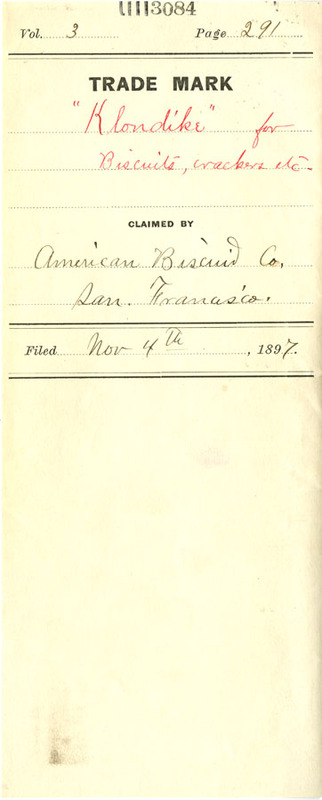 3084
Vol. 3 Page 291
TRADE MARK
"Klondike" for
Biscuits, crackers etc.
CLAIMED BY
American Biscuit Co.
San. Francisco.
Filed Nov 4th, 1897.